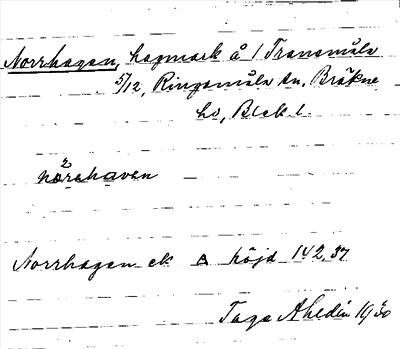 Norrhagen, hagmark å 1 Transmåla
5/12, Ringamåla sn, Bräkne
hd, Blek l.
nǒrehaven
Norrhagen ek △ höjd 142,37
Tage Ahldén 1930